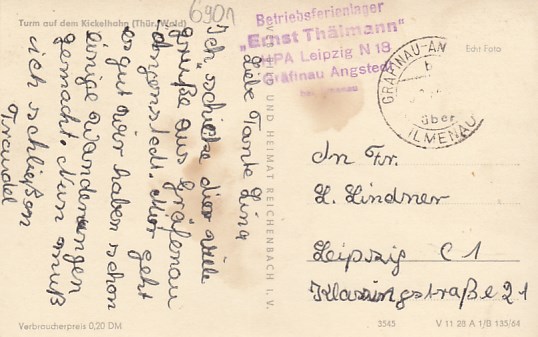 Turm auf dem Kickelhahn (Thür. Wald)
6901
Betriebsferienlager
"Ernst Thälmann"
HPA Leipzig N 18
Gräfinau Angstedt
Echt Foto
GRÄFINAU-AN
b
über
ILMENAU
Liebe Tante Lina
Ich schicke dir viele
grüße aus Gräfenau
Angenstedt. Mir geht
es gut wir haben schon
einige Wanderungen
gemacht. Nun muß
ich schließen
Traudel
UND HEIMAT REICHENBACH I. V.
An Fr.
L. Lindner
Leipzig C 1
Klasingstraße 21
Verbraucherpreis 0,20 DM
3545
V 11 28 A 1/B 135/64